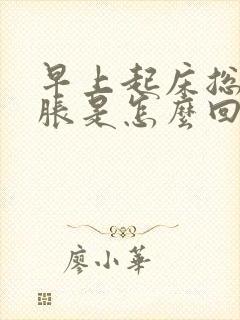 早上起床总
脹是怎麼回
廖小華